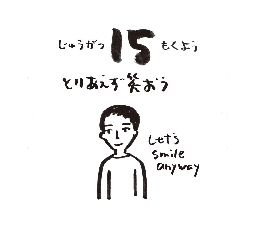 じゅうがつ 15 もくよう
とりあえず笑おう
Let's
smile
anyway